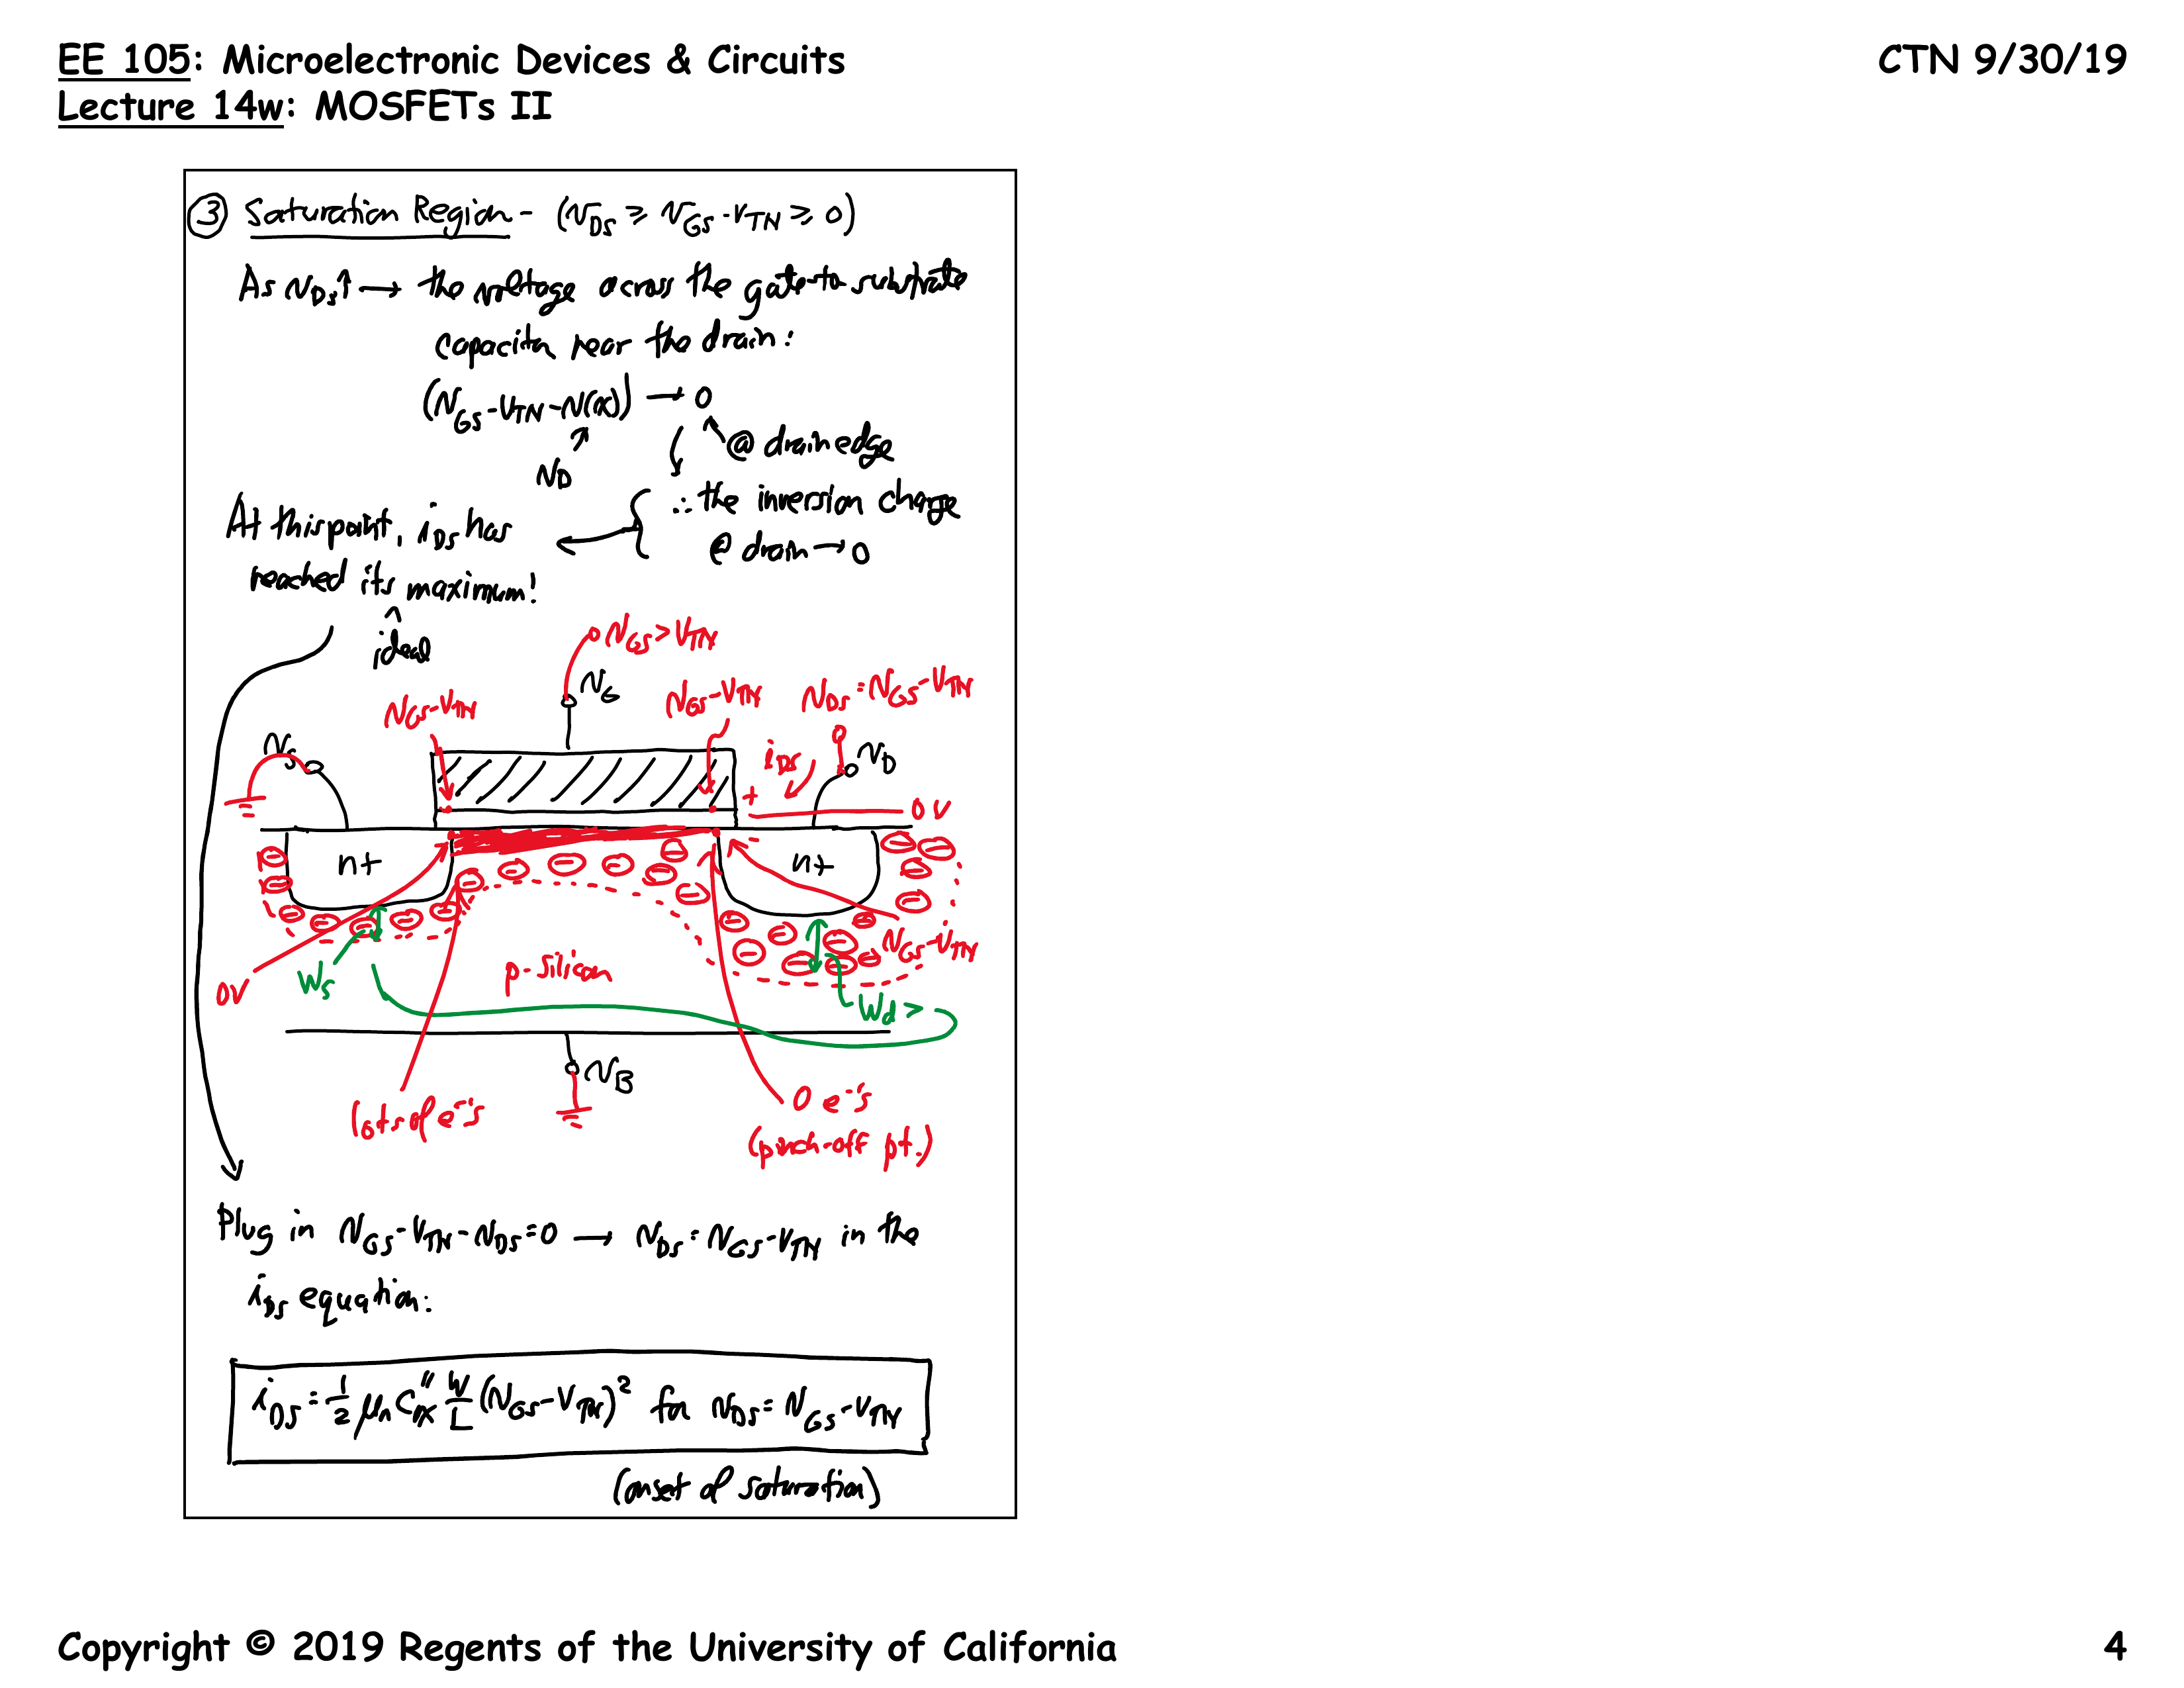 EE 105: Microelectronic Devices & Circuits
CTN 9/30/19
Lecture 14w: MOSFETs II
③ Saturation Region - (v_DS ≥ v_GS - V_TN ≥ 0)
As v_DS↑ → the voltage across the gate-to-substrate
capacitor near the drain:
(v_GS - V_TN - v(x)) → 0
v_D
@ drain edge
∴ the inversion charge
@ drain → 0
At this point, i_DS has
reached its maximum!
^
ideal
v_GS > V_TN
v_G
v_GS - V_TN
v_GS - V_TN
v_DS = v_GS - V_TN
v_S
i_DS
v_D
+
0V
-
n+
n+
v_GS - V_TN
0V
W_s
p-silicon
W_d >
v_B
lots of e⁻'s
0 e⁻'s
(pinch-off pt.)
Plug in v_GS - V_TN - v_DS = 0 → v_DS = v_GS - V_TN in the
i_DS equation:
i_DS = 1/2 μ_n C_ox'' W/L (v_GS - V_TN)² for v_DS = v_GS - V_TN
(onset of saturation)
Copyright © 2019 Regents of the University of California
4